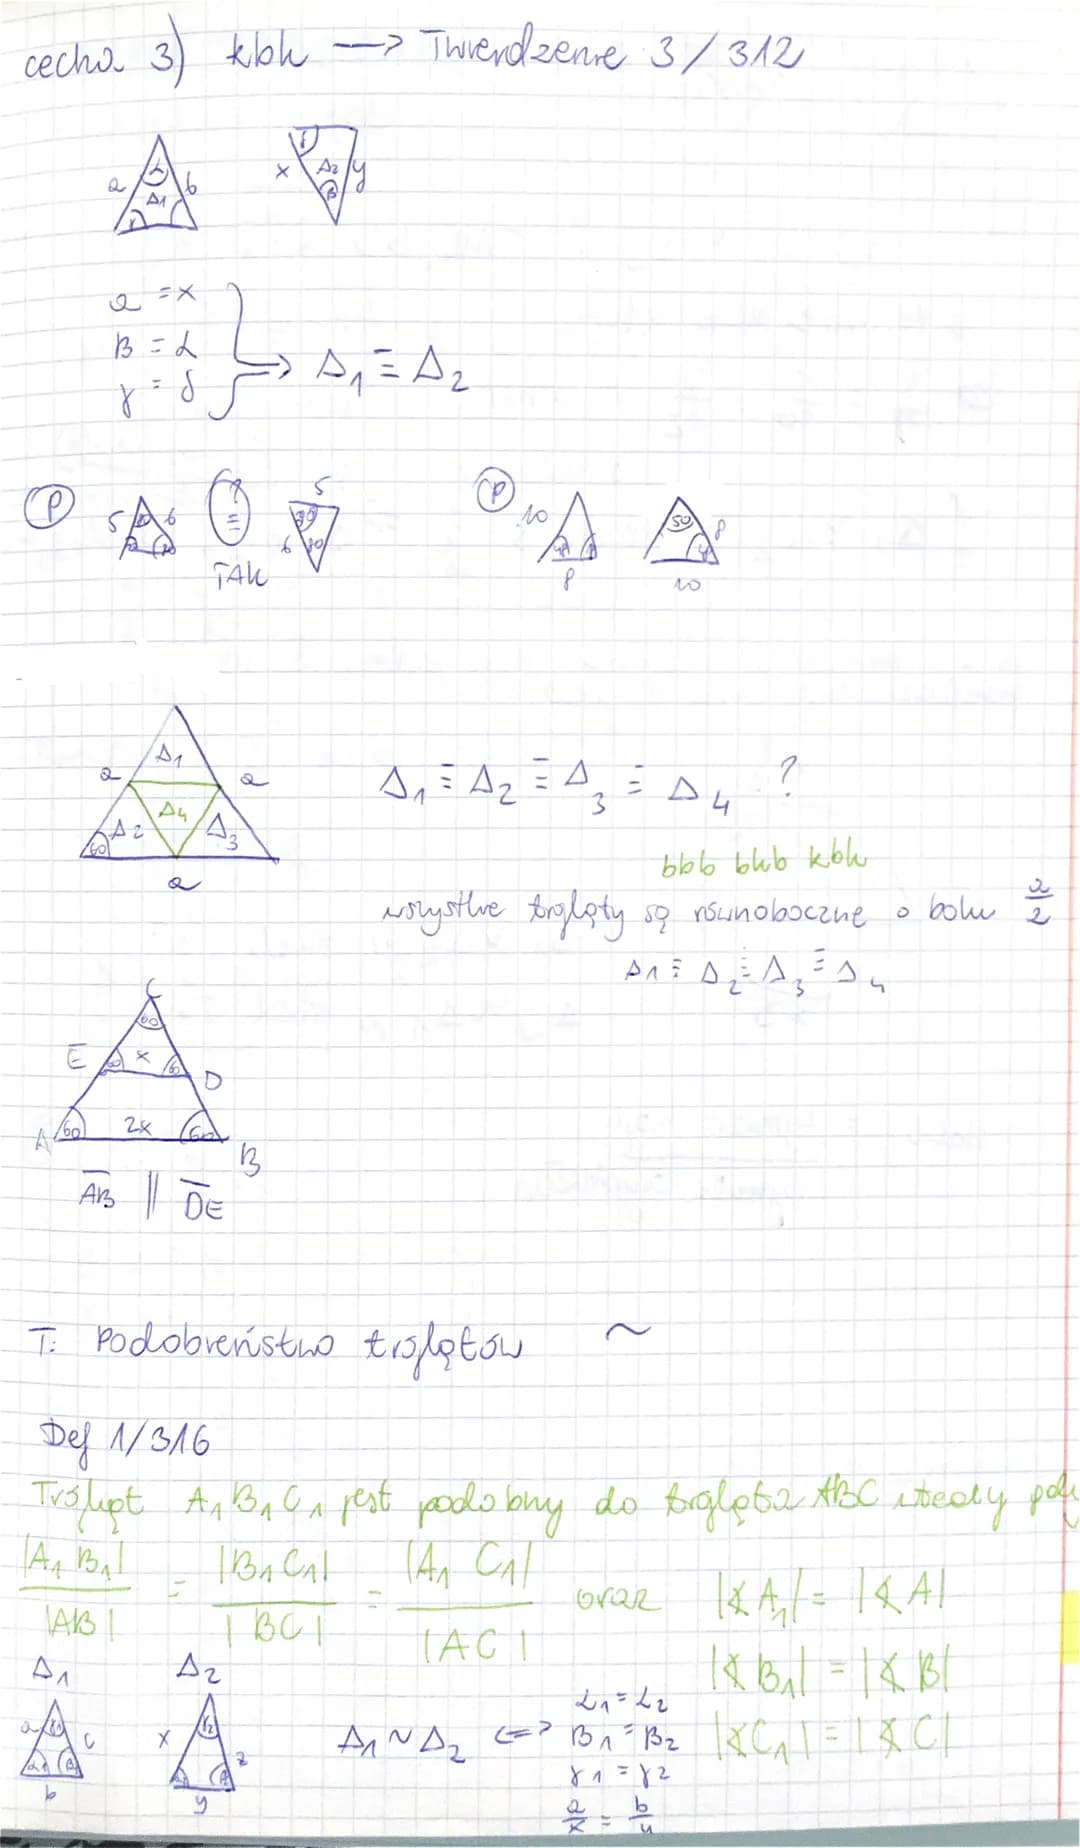 cecha 3) kbk —> Twierdzenie 3/312
α
a Δ1 b
x Δ2 y
β
a = x
β = α
γ = δ
=> Δ1 ≡ Δ2
P
5 6
? ≡
TAK
5
6
P
10
8
50
8
10
Δ1
a a
Δ2 Δ4 Δ3
60
a
Δ1 ≡ Δ2 ≡ Δ3 ≡ Δ4 ?
bbb bkb kbk
wszystkie trójkąty są równoboczne o boku a/2
Δ1 ≡ Δ2 ≡ Δ3 ≡ Δ4
C
60
E 60 x 60 D
A 60 2x 60 B
AB || DE
T: Podobieństwo trójkątów ~
Def 1/316
Trójkąt A1 B1 C1 jest podobny do trójkąta ABC wtedy
|A1 B1| / |AB| = |B1 C1| / |BC| = |A1 C1| / |AC| oraz |∡A1| = |∡A|
|∡B1| = |∡B|
|∡C1| = |∡C|
Δ1 Δ2
a c
b
x z
y
Δ1 ~ Δ2 <=> α1 = α2
β1 = β2
γ1 = γ2
a/x = b/y